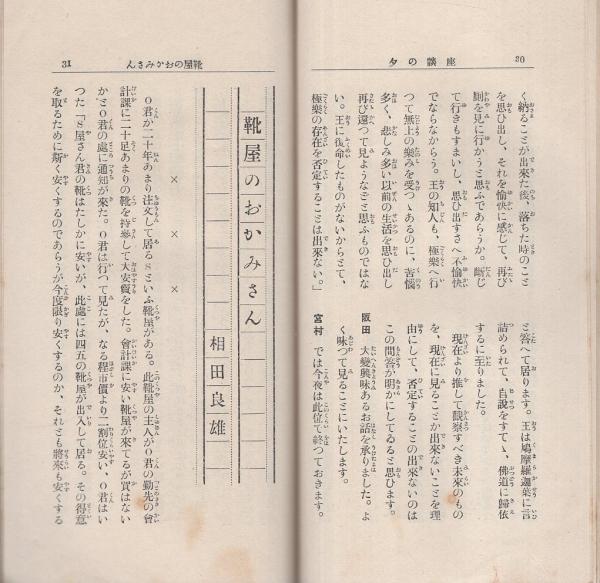 座談の夕
30
く納ることが出來た後、落ちた時のこと
を思ひ出し、それを愉快に感じて、再び
厠を見に行かうと思ふであらうか。斷じ
て行きもすまいし、思ひ出すさへ不愉快
でならなからう。王の知人も、極樂へ行
つて無上の樂みを受つゝあるのに、苦惱
多く、悲しみ多い以前の生活を思ひ出し
再び還つて見ようなどと思ふものではな
い。王に復命したものがないからとて、
極樂の存在を否定することは出來ない。」
と答へて居ります。王は鳩摩羅迦葉に言
詰められて、自說をすてゝ、佛道に歸依
するに至りました。
現在より推して觀察すべき未來のもの
を、現在に見ることが出來ないことを理
由にして、否定することの出來ないのは
この問答が明かにしてゐると思ひます。
阪田 大變興味あるお話を承りました。よ
く味つて見ることにいたします。
宮村 では今夜は此位で終つておきます。
靴屋のおかみさん
31
靴屋のおかみさん
相田良雄
× × ×
O君が二十年あまり注文して居るSといふ靴屋がある。此靴屋の主人がO君の勤先の會
計課に二十足あまりの靴を持參して大安賣をした。會計課に安い靴屋が來てるが買はない
かとO君の處に通知が來た。O君は行つて見たが、なる程市價より二割位安い、O君はい
つた「S屋さん君の靴はたしかに安いが、此處には四五の靴屋が出入して居る。その得意
を取るために斯く安くするのであらうが今度限り安くするのか、それとも將來も安くする